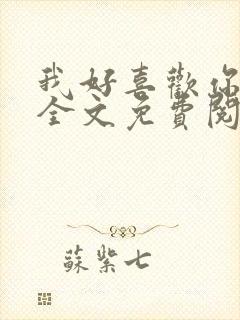 我好喜歡你
全文免費閱
蘇紫七